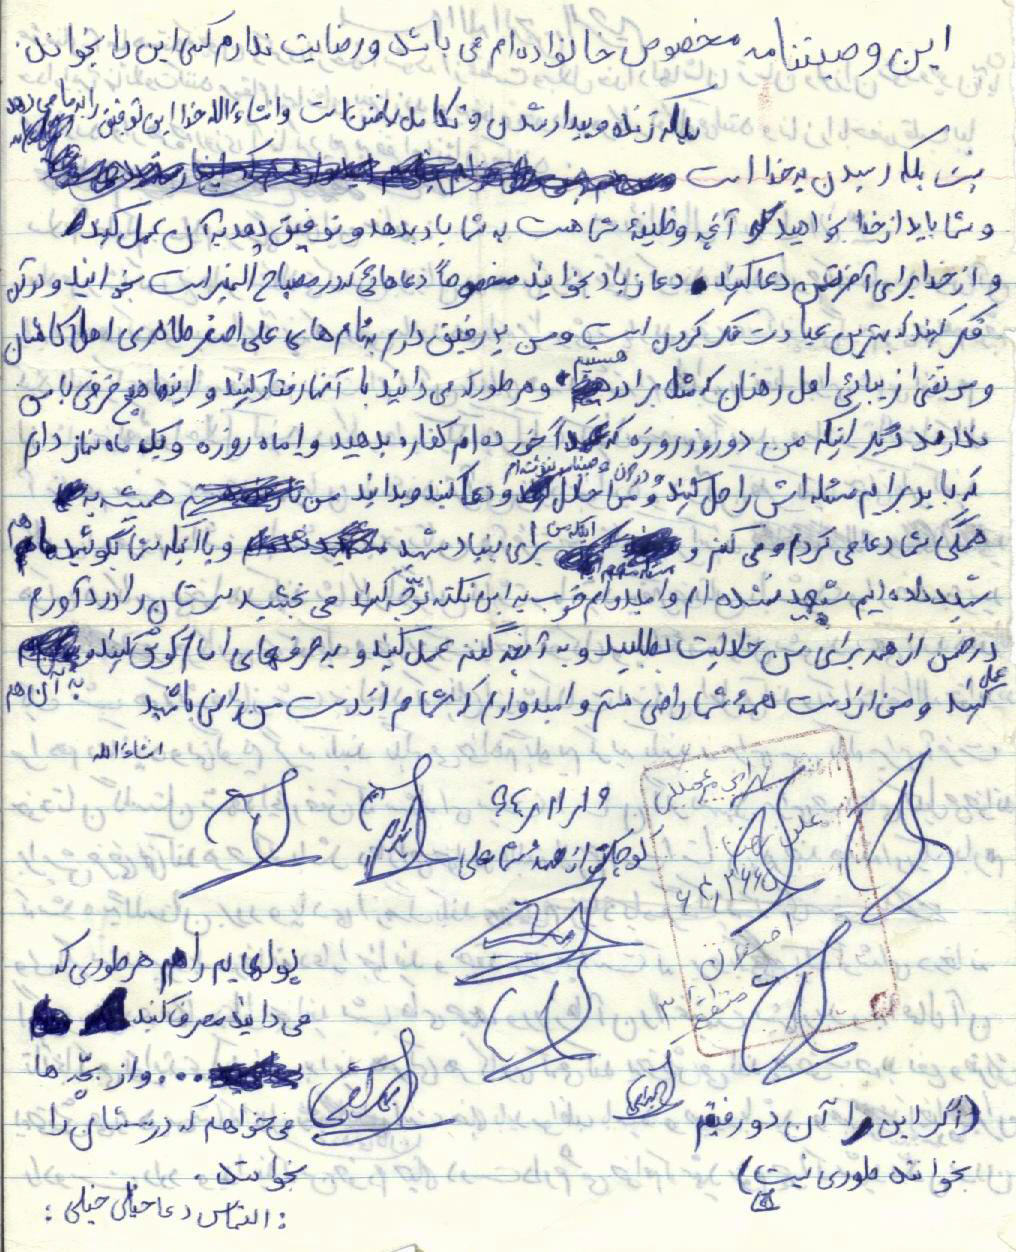 این وصیتنامه مخصوص خانواده‌ام می باشد و رضایت ندارم کسی این را بخواند.
بلکه زنده و بیدار شدن و تکامل یافتن است و انشاءالله خدا این توفیق را به ما می دهد
نیست بلکه رسیدن به خدا است
و شما باید از خدا بخواهید آنچه وظیفهٔ شما هست به شما یاد بدهد و توفیق بدهد به آن عمل کنید
و از خدا برای آخرتتان دعا کنید. دعا زیاد بخوانید مخصوصاً دعاهائی که در مصباح المنیر است بخوانید و در آن
فکر کنید که بهترین عبادت فکر کردن است و من یه رفیق دارم به نام های علی اصغر طاهری اهل کاشان
و مرتضی زیبائی اهل رهنان که مثل برادر هستیم و هر طور که می دانید با آنها رفتار کنید و اینها هیچ فرقی با من
ندارند دیگر اینکه من دو روز روزه که خورده ام کفاره بدهید و ماه روزه و یک ماه نماز دارم
که باید برایم مسئله اش را حل کنید و مرا حلال و دعا کنید و بدانید من همیشه به
همگی شما دعا می کردم و می کنم و اینکه من برای بنیاد شهید و یا اینکه شما بگوئید ما هم
شهید داده ایم شهید نشده ام و امیدوارم خوب به این نکته توجّه کنید می بخشید سرتان را درد آوردم
در ضمن از همه برای من حلالیت بطلبید و به آنچه گفته عمل کنید و به حرفهای امام گوش کنید و به آن هم
عمل کنید و من از دست همهٔ شما راضی هستم و امیدوارم که شما هم از دست من راضی باشید
انشاءالله
کوچکتر از همهٔ شما علی
پولهایم را هم هر طوری که
می دانید مصرف کنید
... و از بچّه ها
می خواهم که درسهای را
بخوانند.
(اگر این را آن دو رفیقم
بخوانند طوری نیست)
: التماس دعا خیلی خیلی :